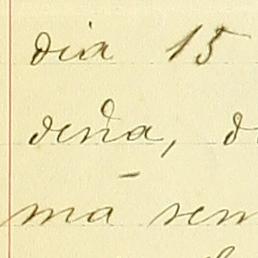 dia 15
deña, d
ma sem